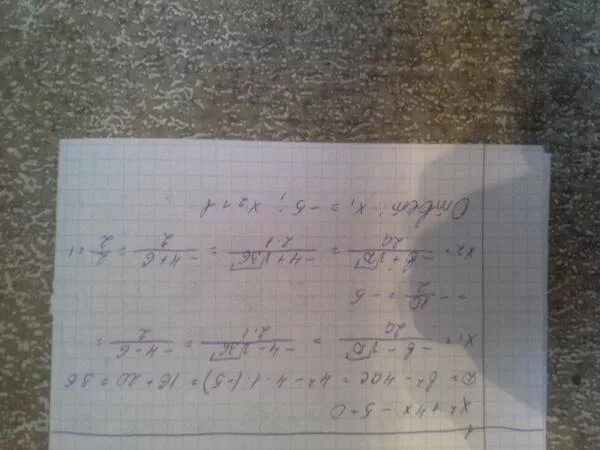 x² + 4x - 5 = 0
D = b² - 4ac = 4² - 4·1·(-5) = 16 + 20 = 36
x₁ = (-b - √D)/2a = (-4 - √36)/2·1 = (-4 - 6)/2 =
= -10/2 = -5
x₂ = (-b + √D)/2a = (-4 + √36)/2·1 = (-4 + 6)/2 = 2/2 = 1
Ответ: x₁ = -5; x₂ = 1